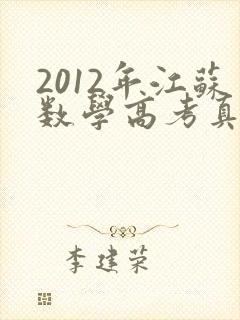 2012年江蘇
数學高考真
李建荣